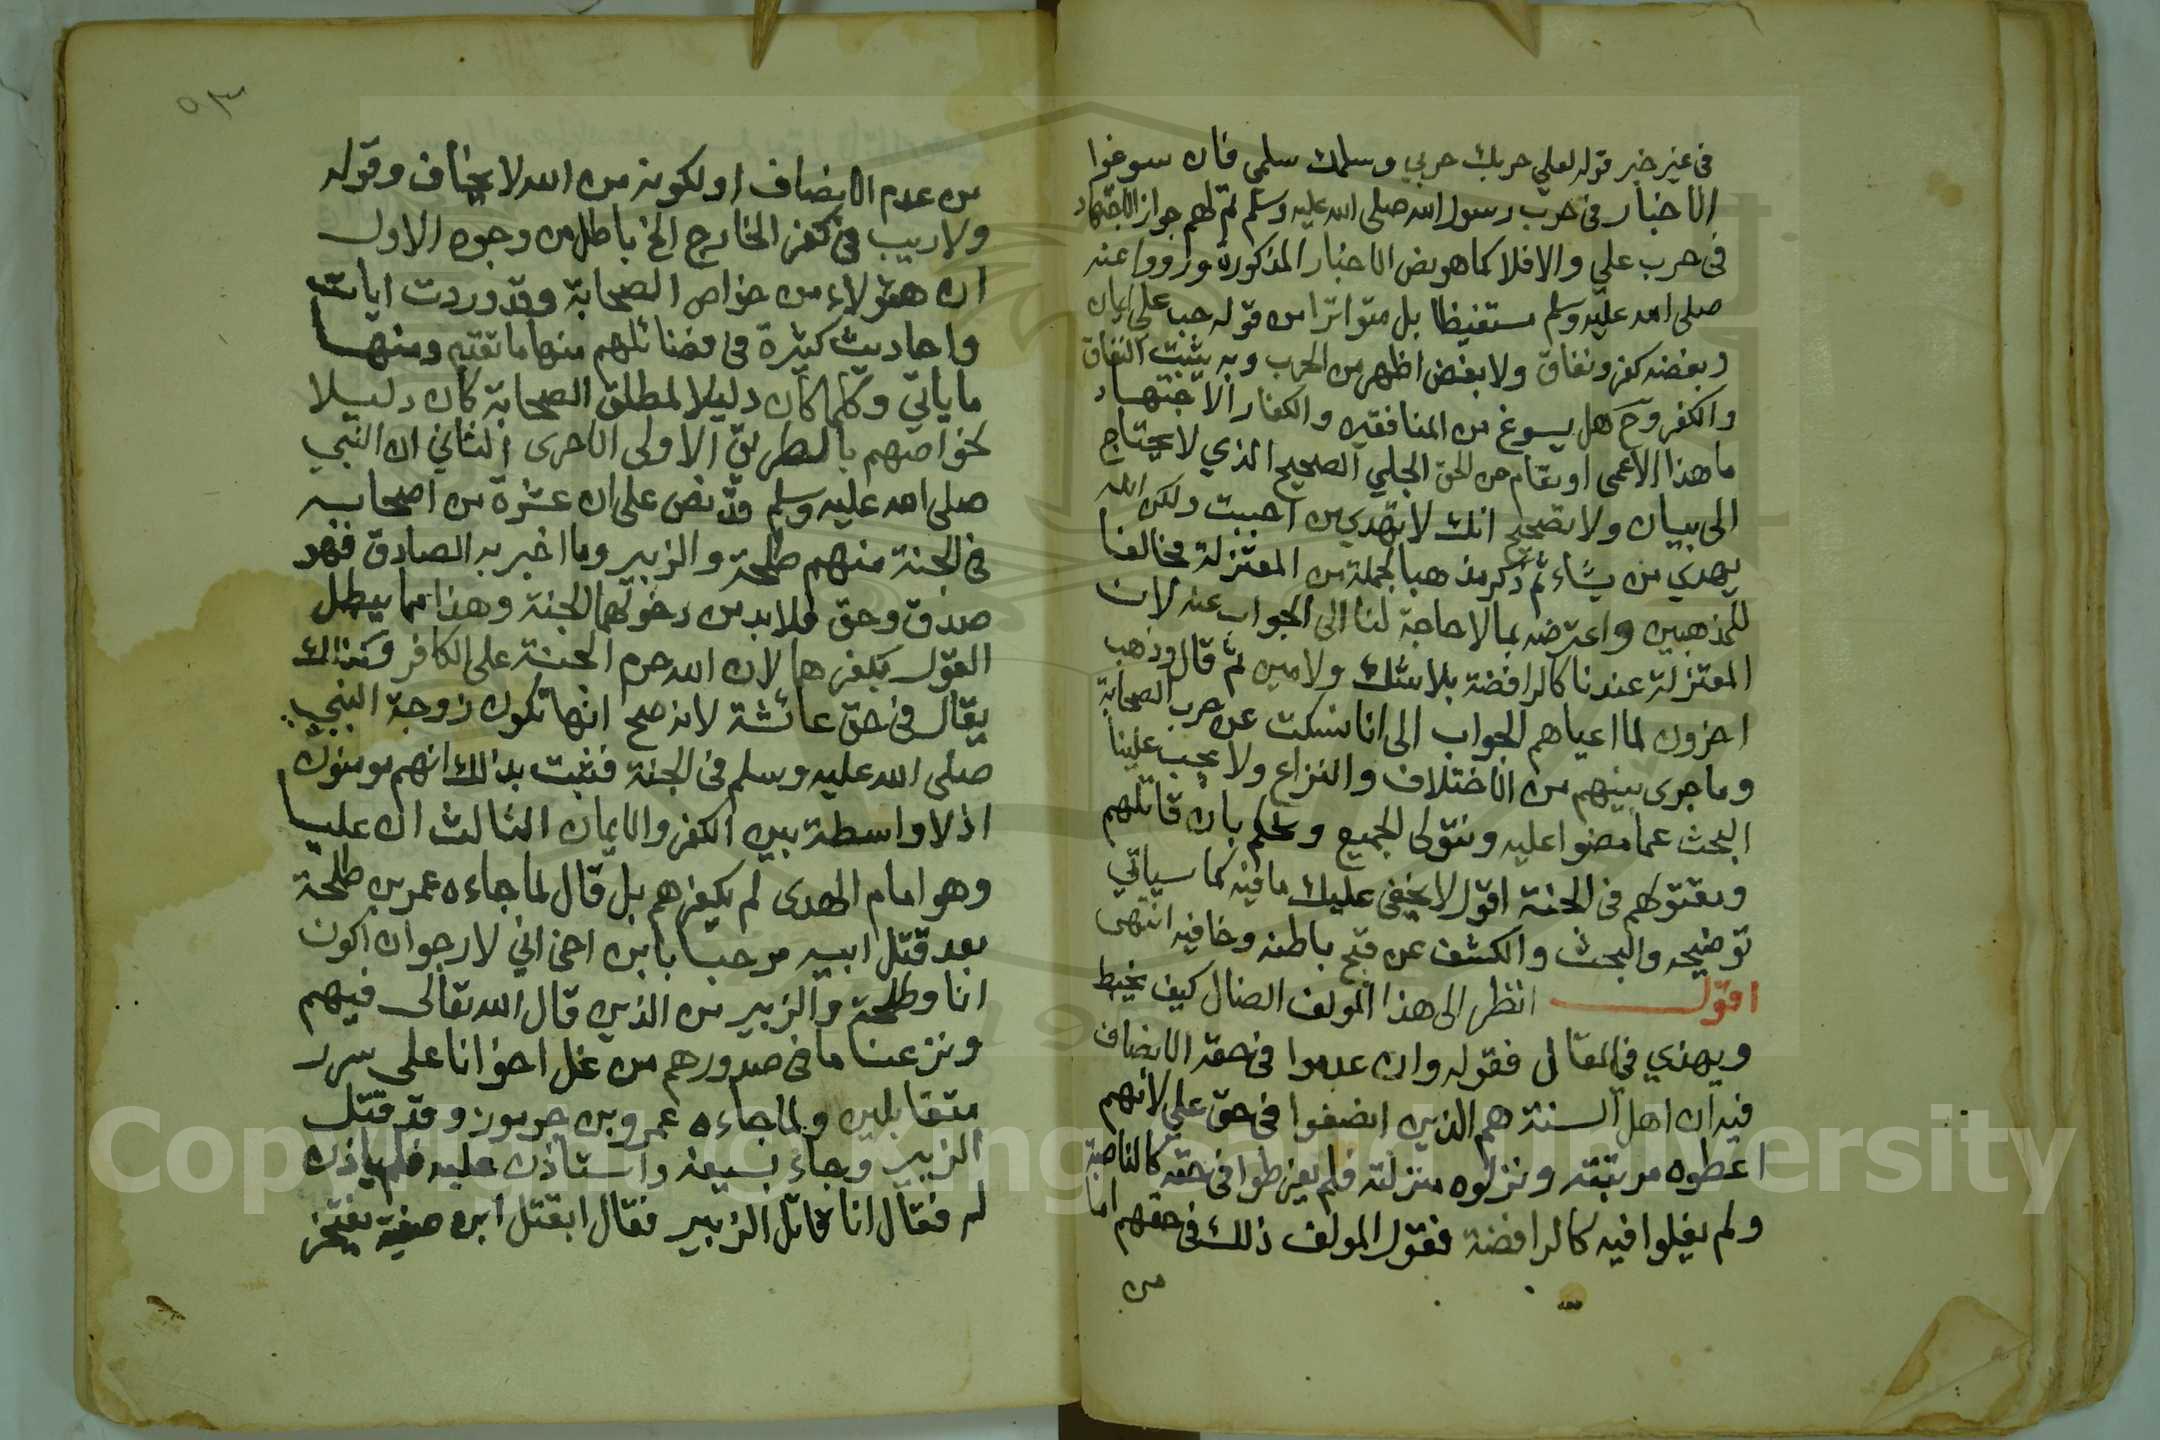 في غير خبر قوله لعلي حربك حربي وسلمك سلمي فان سوغوا
الاخبار في حرب رسول الله صلى الله عليه وسلم تم لهم جواز الاجتهاد
في حرب علي والافلا كما هو نص الاخبار المذكورة ورووا عنه
صلى الله عليه وسلم مستفيظا بل متواترا من قوله حب علي ايمان
وبغضه كفر ونفاق ولا بغض اظهر من الحرب وبه يثبت النفاق
والكفر وح هل يسوغ من المنافقين والكفار الاجتهاد
ما هذا الاعمى او تعام من الحق الجلي الصحيح الذي لا يحتاج
الى بيان ولا تصحيح انك لا تهدي من احببت ولكن الله
يهدي من يشاء ثم ذكر مذهبا لجملة من المعتزلة مخالفا
للمذهبين واعترضه بما لا حاجة لنا الى الجواب عنه لان
المعتزلة عندنا كالرافضة بلا شك ولا مين ثم قال وذهب
اخرون لما اعياهم الجواب الى انا نسكت عن حرب الصحابة
وما جرى بينهم من الاختلاف والنزاع ولا يجب علينا
البحث عما مضوا عليه ونتولى الجميع ونحكم بان قاتلهم
ومقتولهم في الجنة اقول لا يخفى عليك ما فيه كما سياتي
توضيحه والبحث والكشف عن قبح باطنه وخافيه انتهى
اقول انظر الى هذا المولف الضال كيف يخبط
ويهذي في المقال فقوله وان عدموا في حقه الانصاف
فيه ان اهل السنة هم الذين انصفوا في حق علي لانهم
اعطوه مرتبته ونزلوه منزلته فلم يفرطوا في حقه كالناصبة
ولم يغلوا فيه كالرافضة فقول المولف ذلك في حقهم اما
من
٥٣
من عدم الانصاف او لكونه من الله لا يخاف وقوله
ولا ريب في كفر الخارج الخ باطل من وجوه الاول
ان هؤلاء من خواص الصحابة وقد وردت ايات
واحاديث كثيرة في فضائلهم منها ما تقدم ومنها
ما ياتي وكلما كان دليلا لمطلق الصحابة كان دليلا
لخواصهم بالطريق الاولى الاحرى الثاني ان النبي
صلى الله عليه وسلم قد نص على ان عشرة من اصحابه
في الجنة منهم طلحة والزبير وما اخبر به الصادق فهو
صدق وحق فلا بد من دخولهما الجنة وهذا مما يبطل
القول بكفرهما لان الله حرم الجنة على الكافر وكذلك
يقال في حق عائشة لانه صح انها تكون زوجة النبي
صلى الله عليه وسلم في الجنة فثبت بذلك انهم مومنون
اذ لا واسطة بين الكفر والايمان الثالث ان عليا
وهو امام الهدى لم يكفرهم بل قال لما جاءه عمر بن طلحة
بعد قتل ابيه مرحبا بابن اخي اني لارجو ان اكون
انا وطلحة والزبير من الذين قال الله تعالى فيهم
ونزعنا ما في صدورهم من غل اخوانا على سرر
متقابلين ولما جاءه عمرو بن جرموز وقد قتل
الزبير وجاء بسيفه واستاذن عليه فلم ياذن
له فقال انا قاتل الزبير فقال ابقتل ابن صفية تفتخر
Copyright © King Saud University